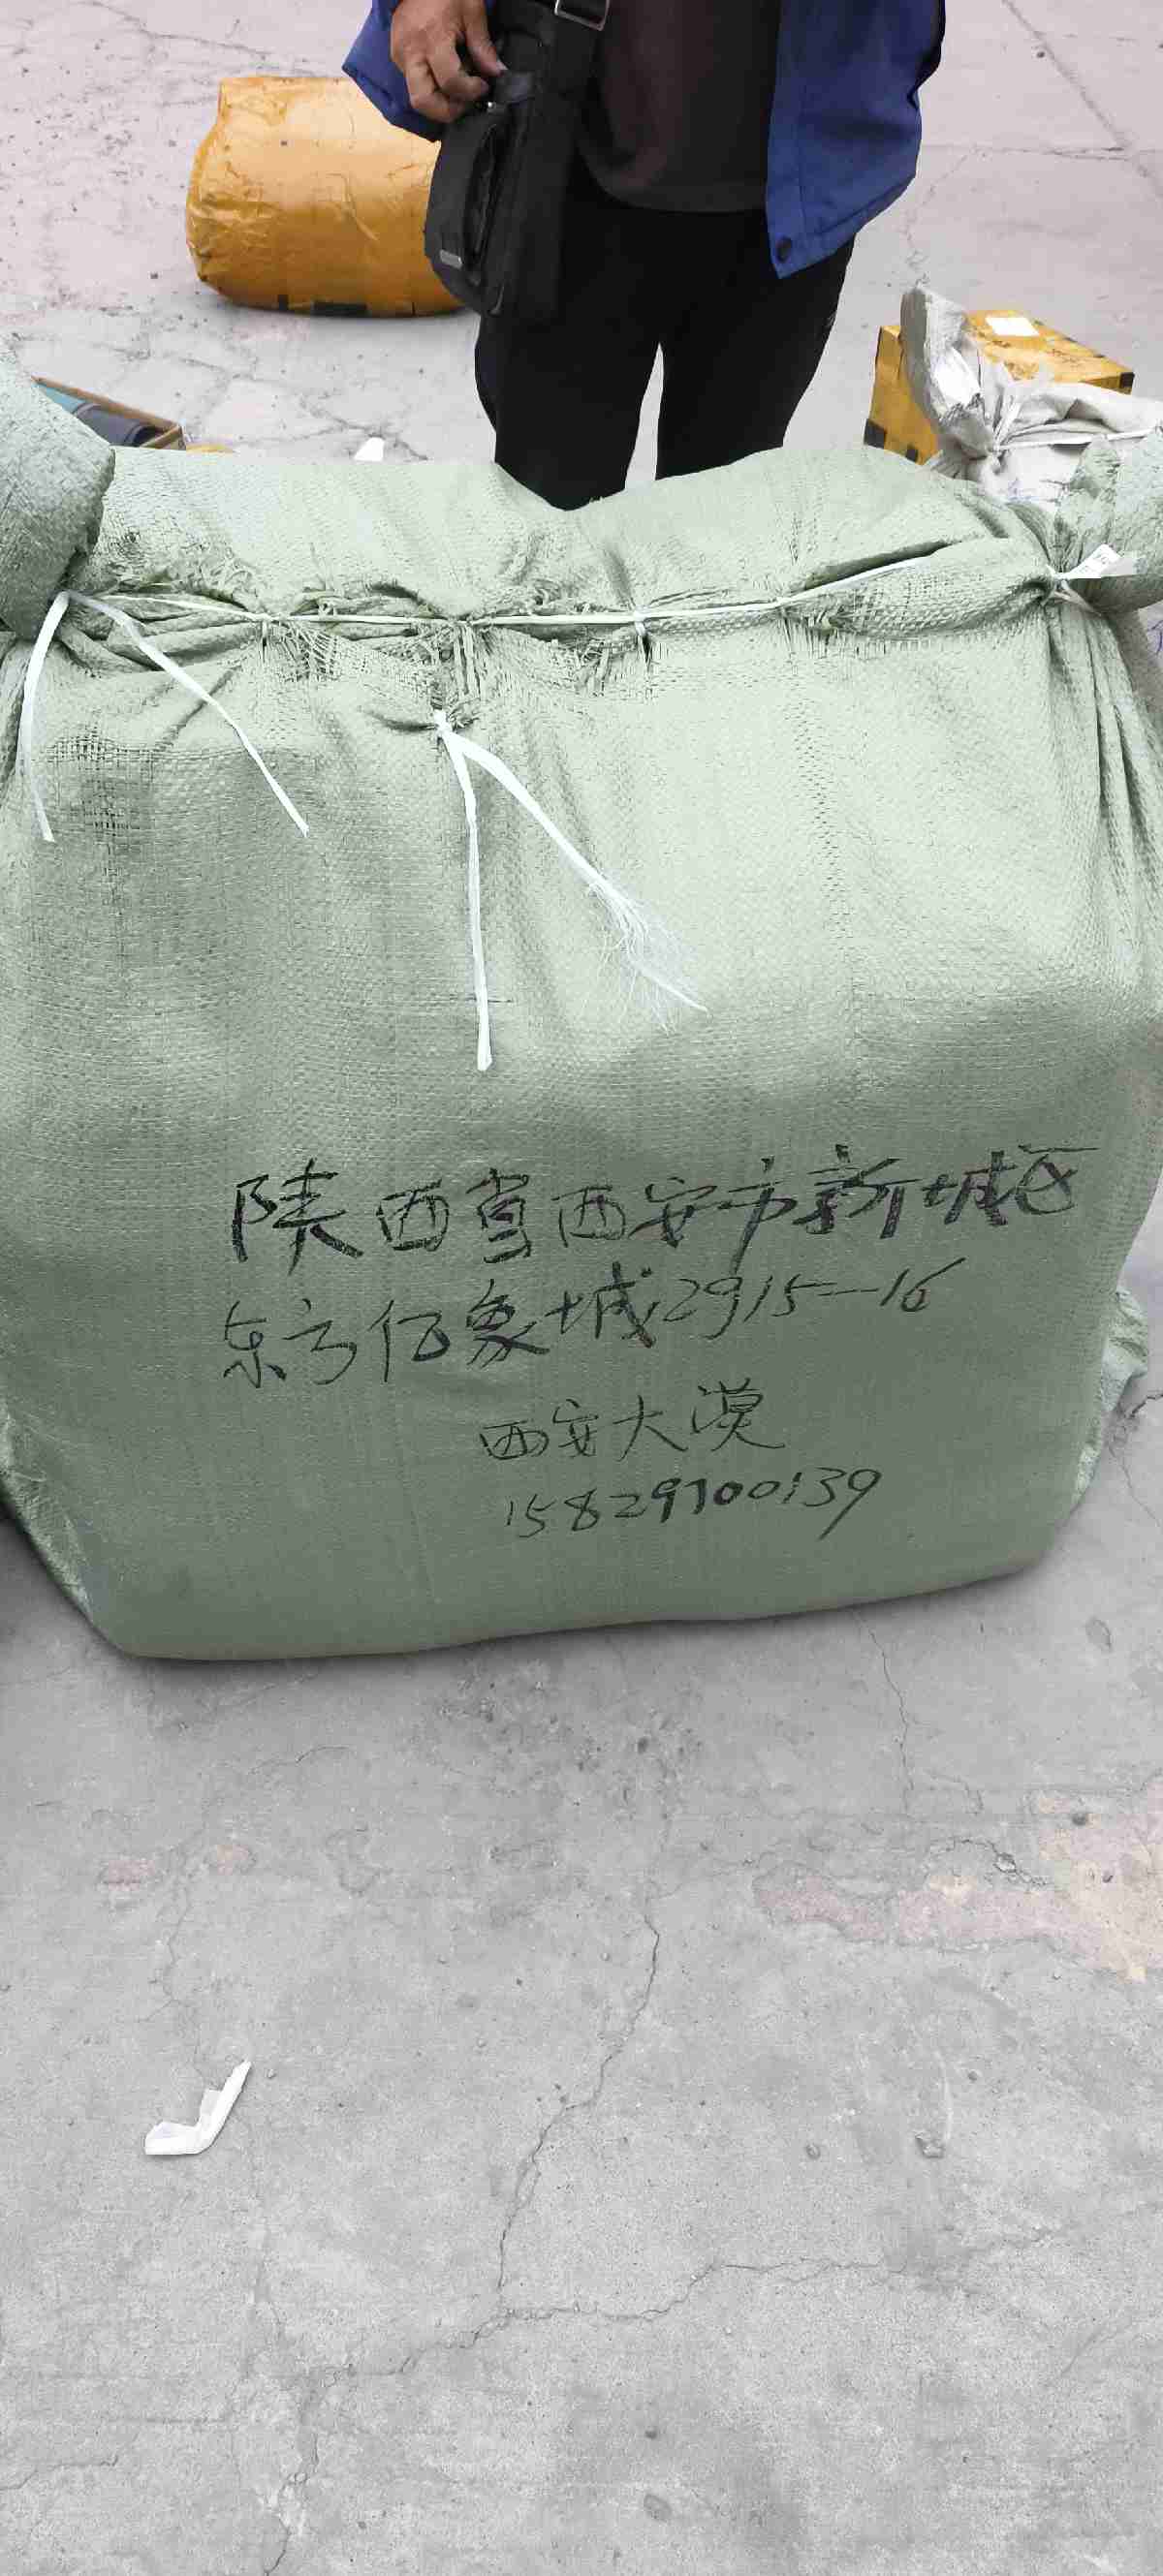 陕西省西安市新城区
东方亿象城2915--16
西安大漠
15829700139